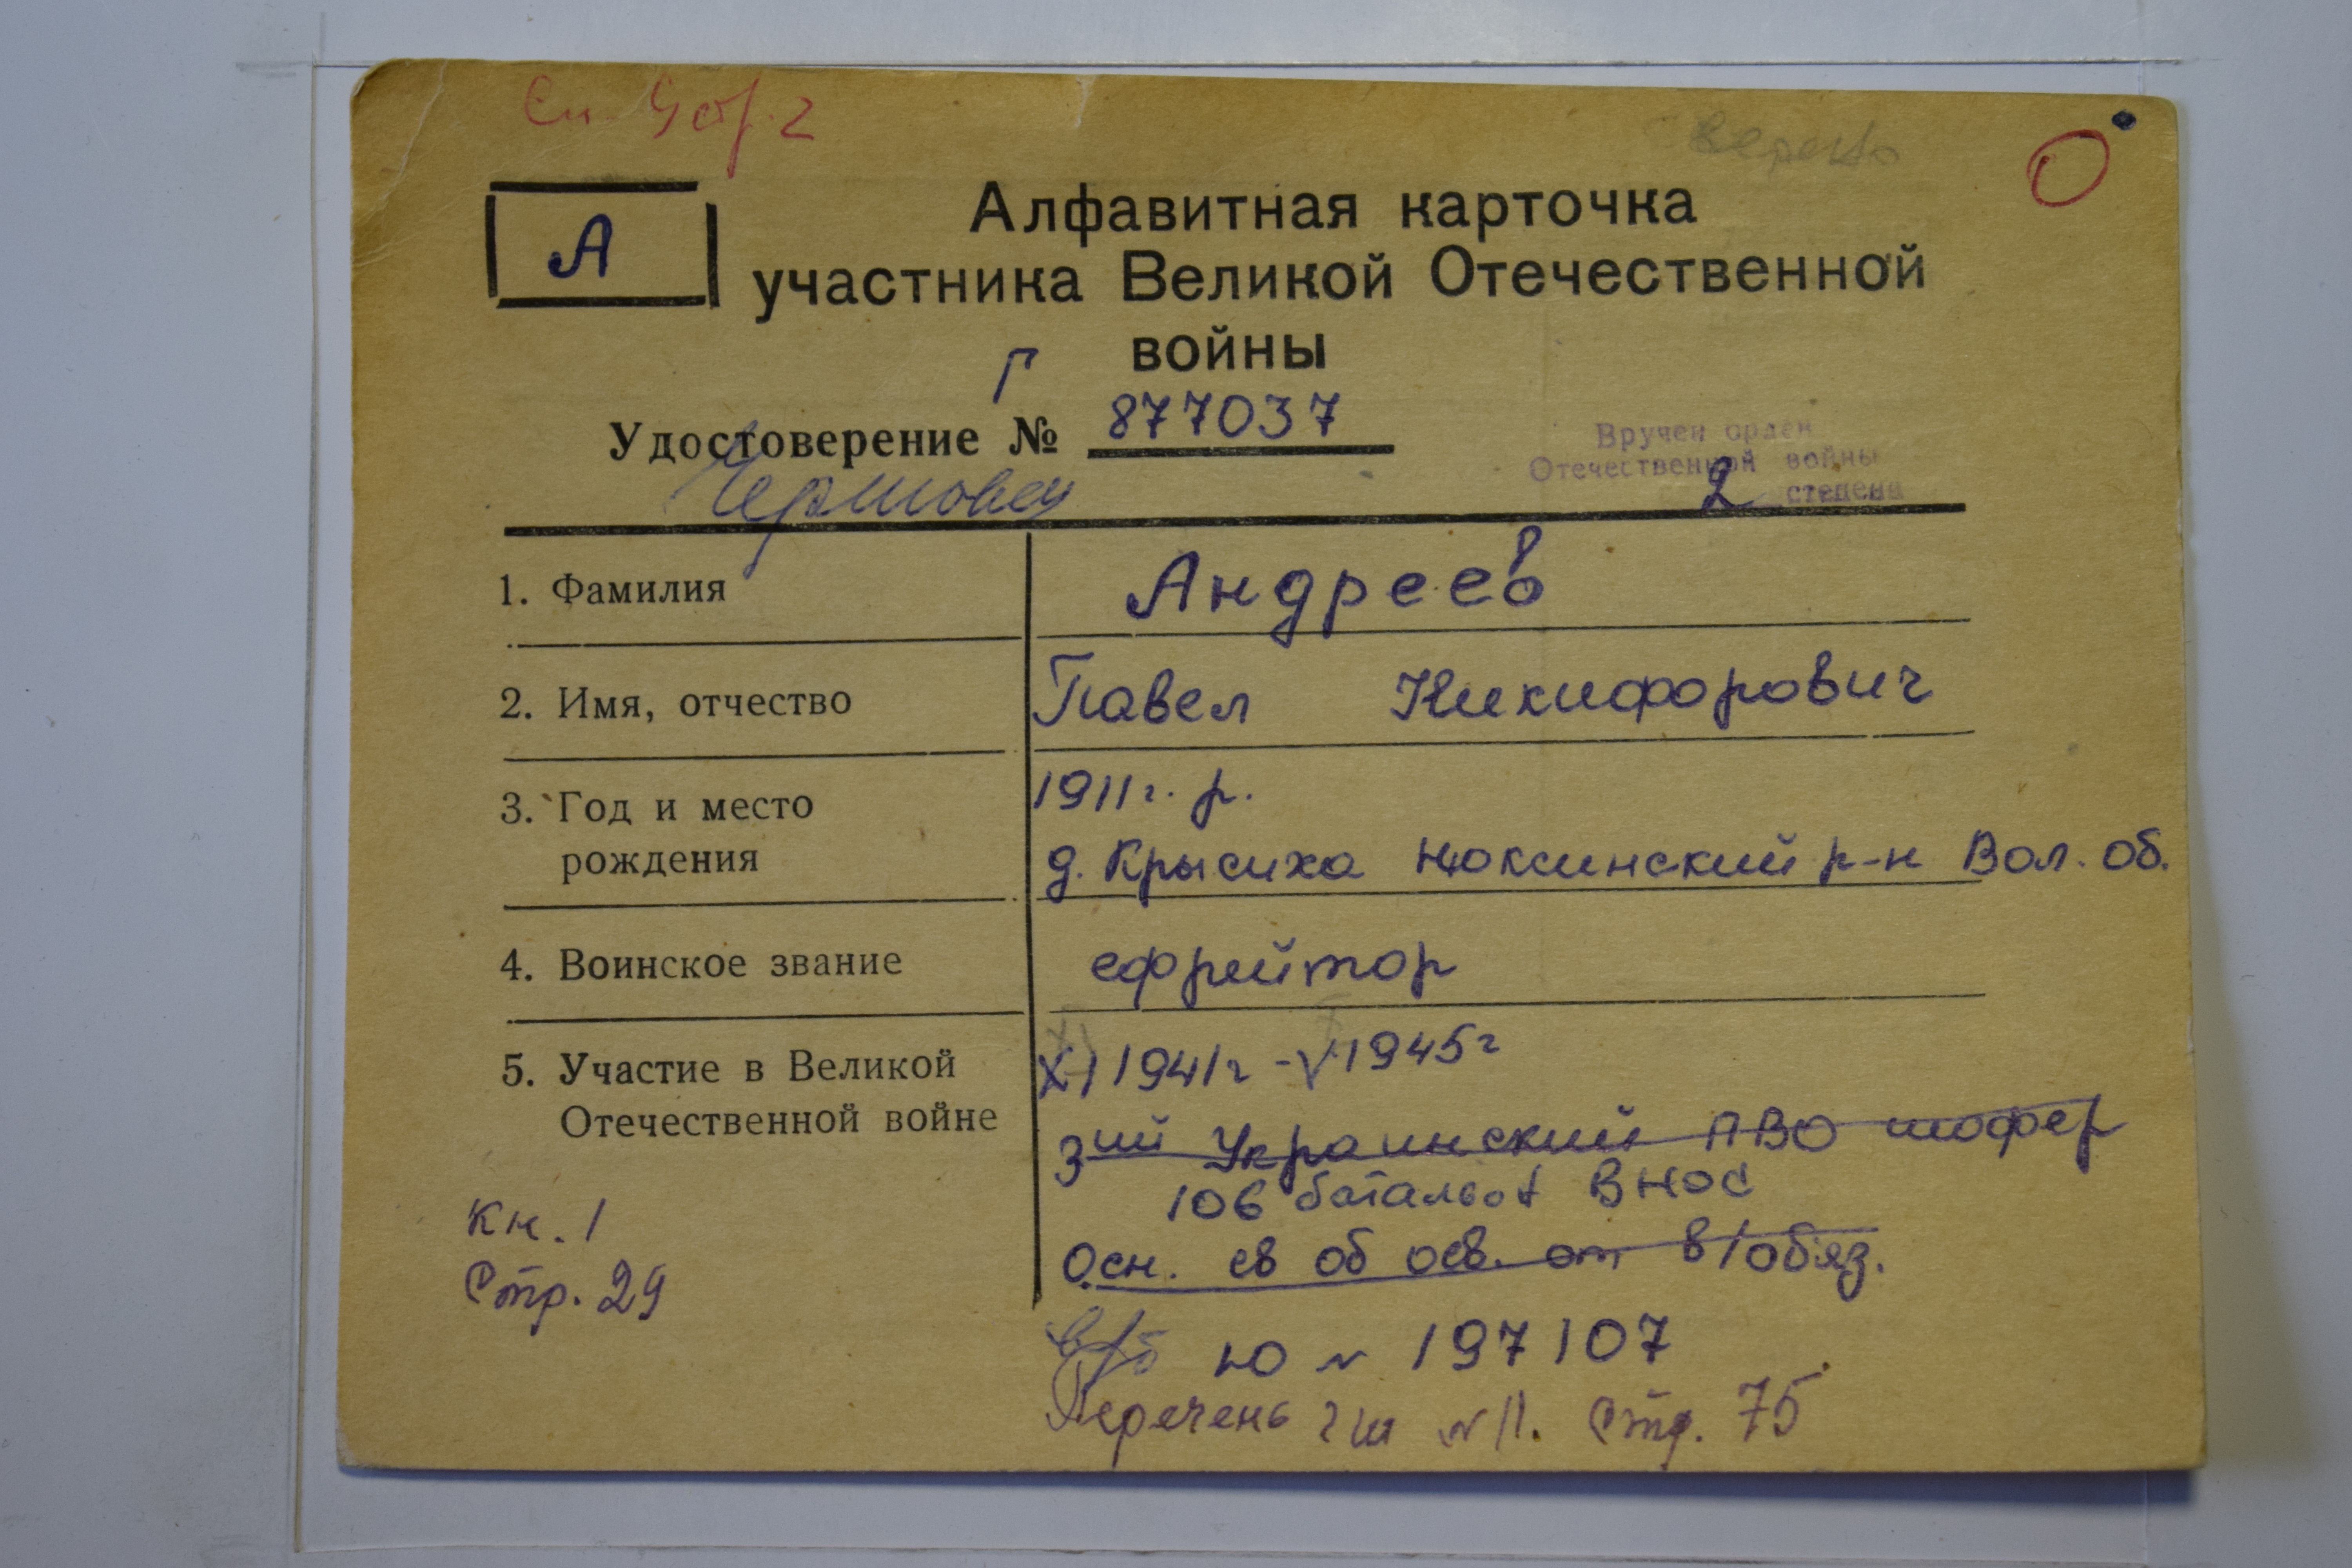 Сп. 4 стр. 2
А
Алфавитная карточка
участника Великой Отечественной
войны
Удостоверение № Г 877037
Вручен орден
Отечественной войны
2 степени
1. Фамилия Андреев
2. Имя, отчество Павел Никифорович
3. Год и место рождения 1911 г. р.
д. Крысиха Нюксинский р-н Вол. об.
4. Воинское звание ефрейтор
5. Участие в Великой Отечественной войне XI 1941г - V 1945г
3ий Украинский ПВО шофер
106 батальон ВНОС
Осн. св об осв. от в/обяз.
в/б НО № 197107
Перечень гш №11. Стр. 75
Кн. 1
Стр. 29